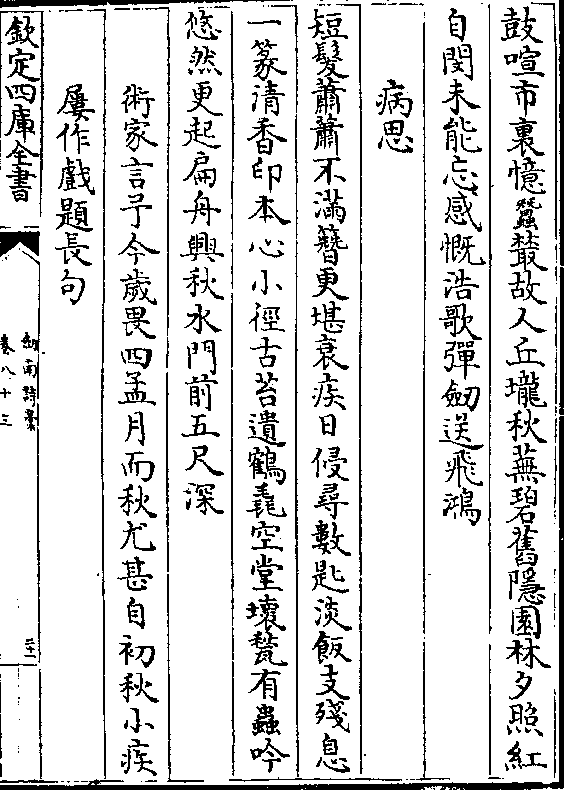 鼓喧市裏憶蠶叢故人丘壠秋蕪碧舊隱園林夕照紅
自閔未能忘感慨浩歌彈劒送飛鴻
病思
短髮蕭蕭不滿簪更堪衰疾日侵尋數匙淡飯支殘息
一篆清香印本心小徑古苔遺鶴毳空堂壞甃有蟲吟
悠然更起扁舟興秋水門前五尺深
術家言予今歲畏四孟月而秋尤甚自初秋小疾
屢作戲題長句
欽定四庫全書
劒南詩藁
卷八十三